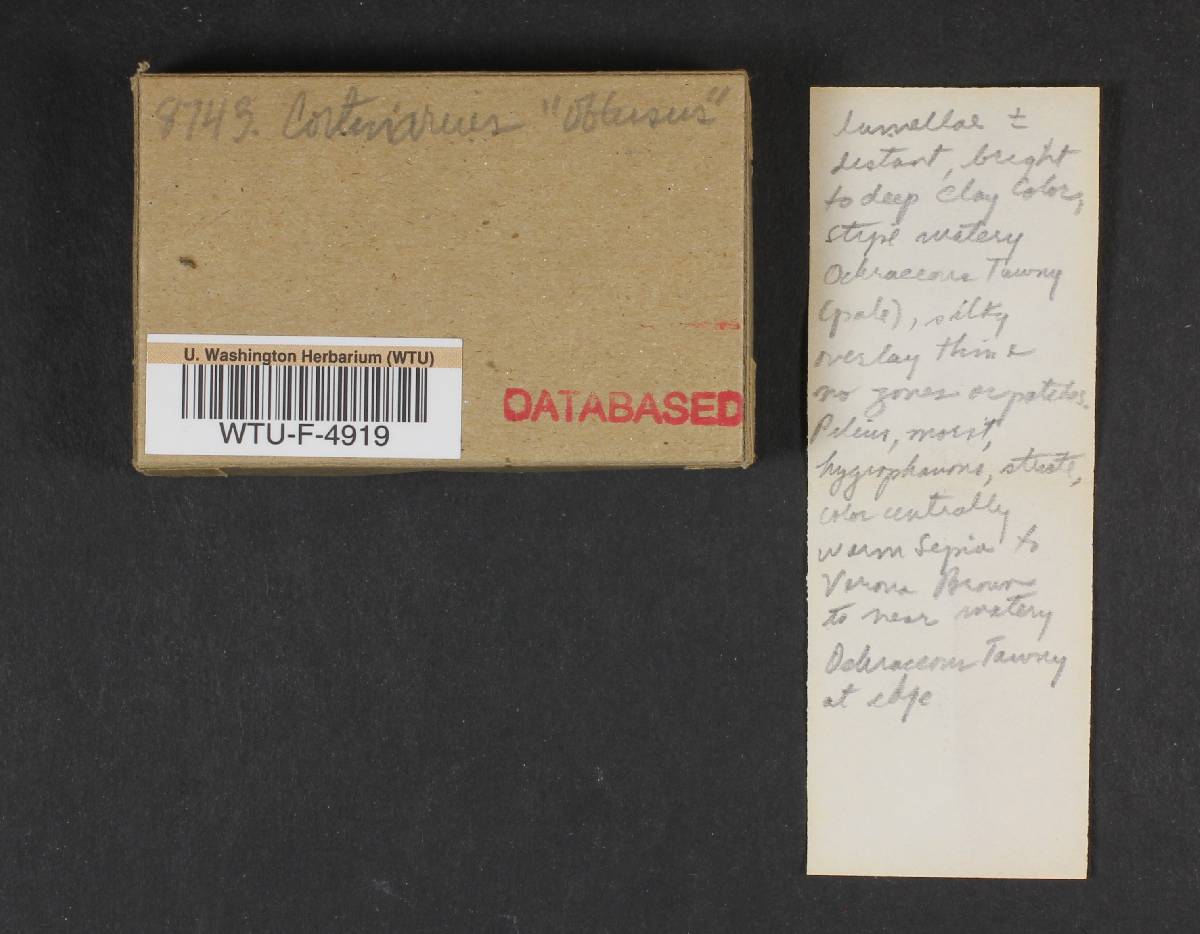 8743. Cortinarius "obtusus"
U. Washington Herbarium (WTU)
WTU-F-4919
DATABASED
lamellae ±
distant, bright
to deep Clay Color,
stipe watery
Ochraceous Tawny
(pale), silky
overlay thin &
no zones or patches.
Pileus, moist,
hygrophanous, striate,
color centrally
warm Sepia to
Verona Brown
to near watery
Ochraceous Tawny
at edge